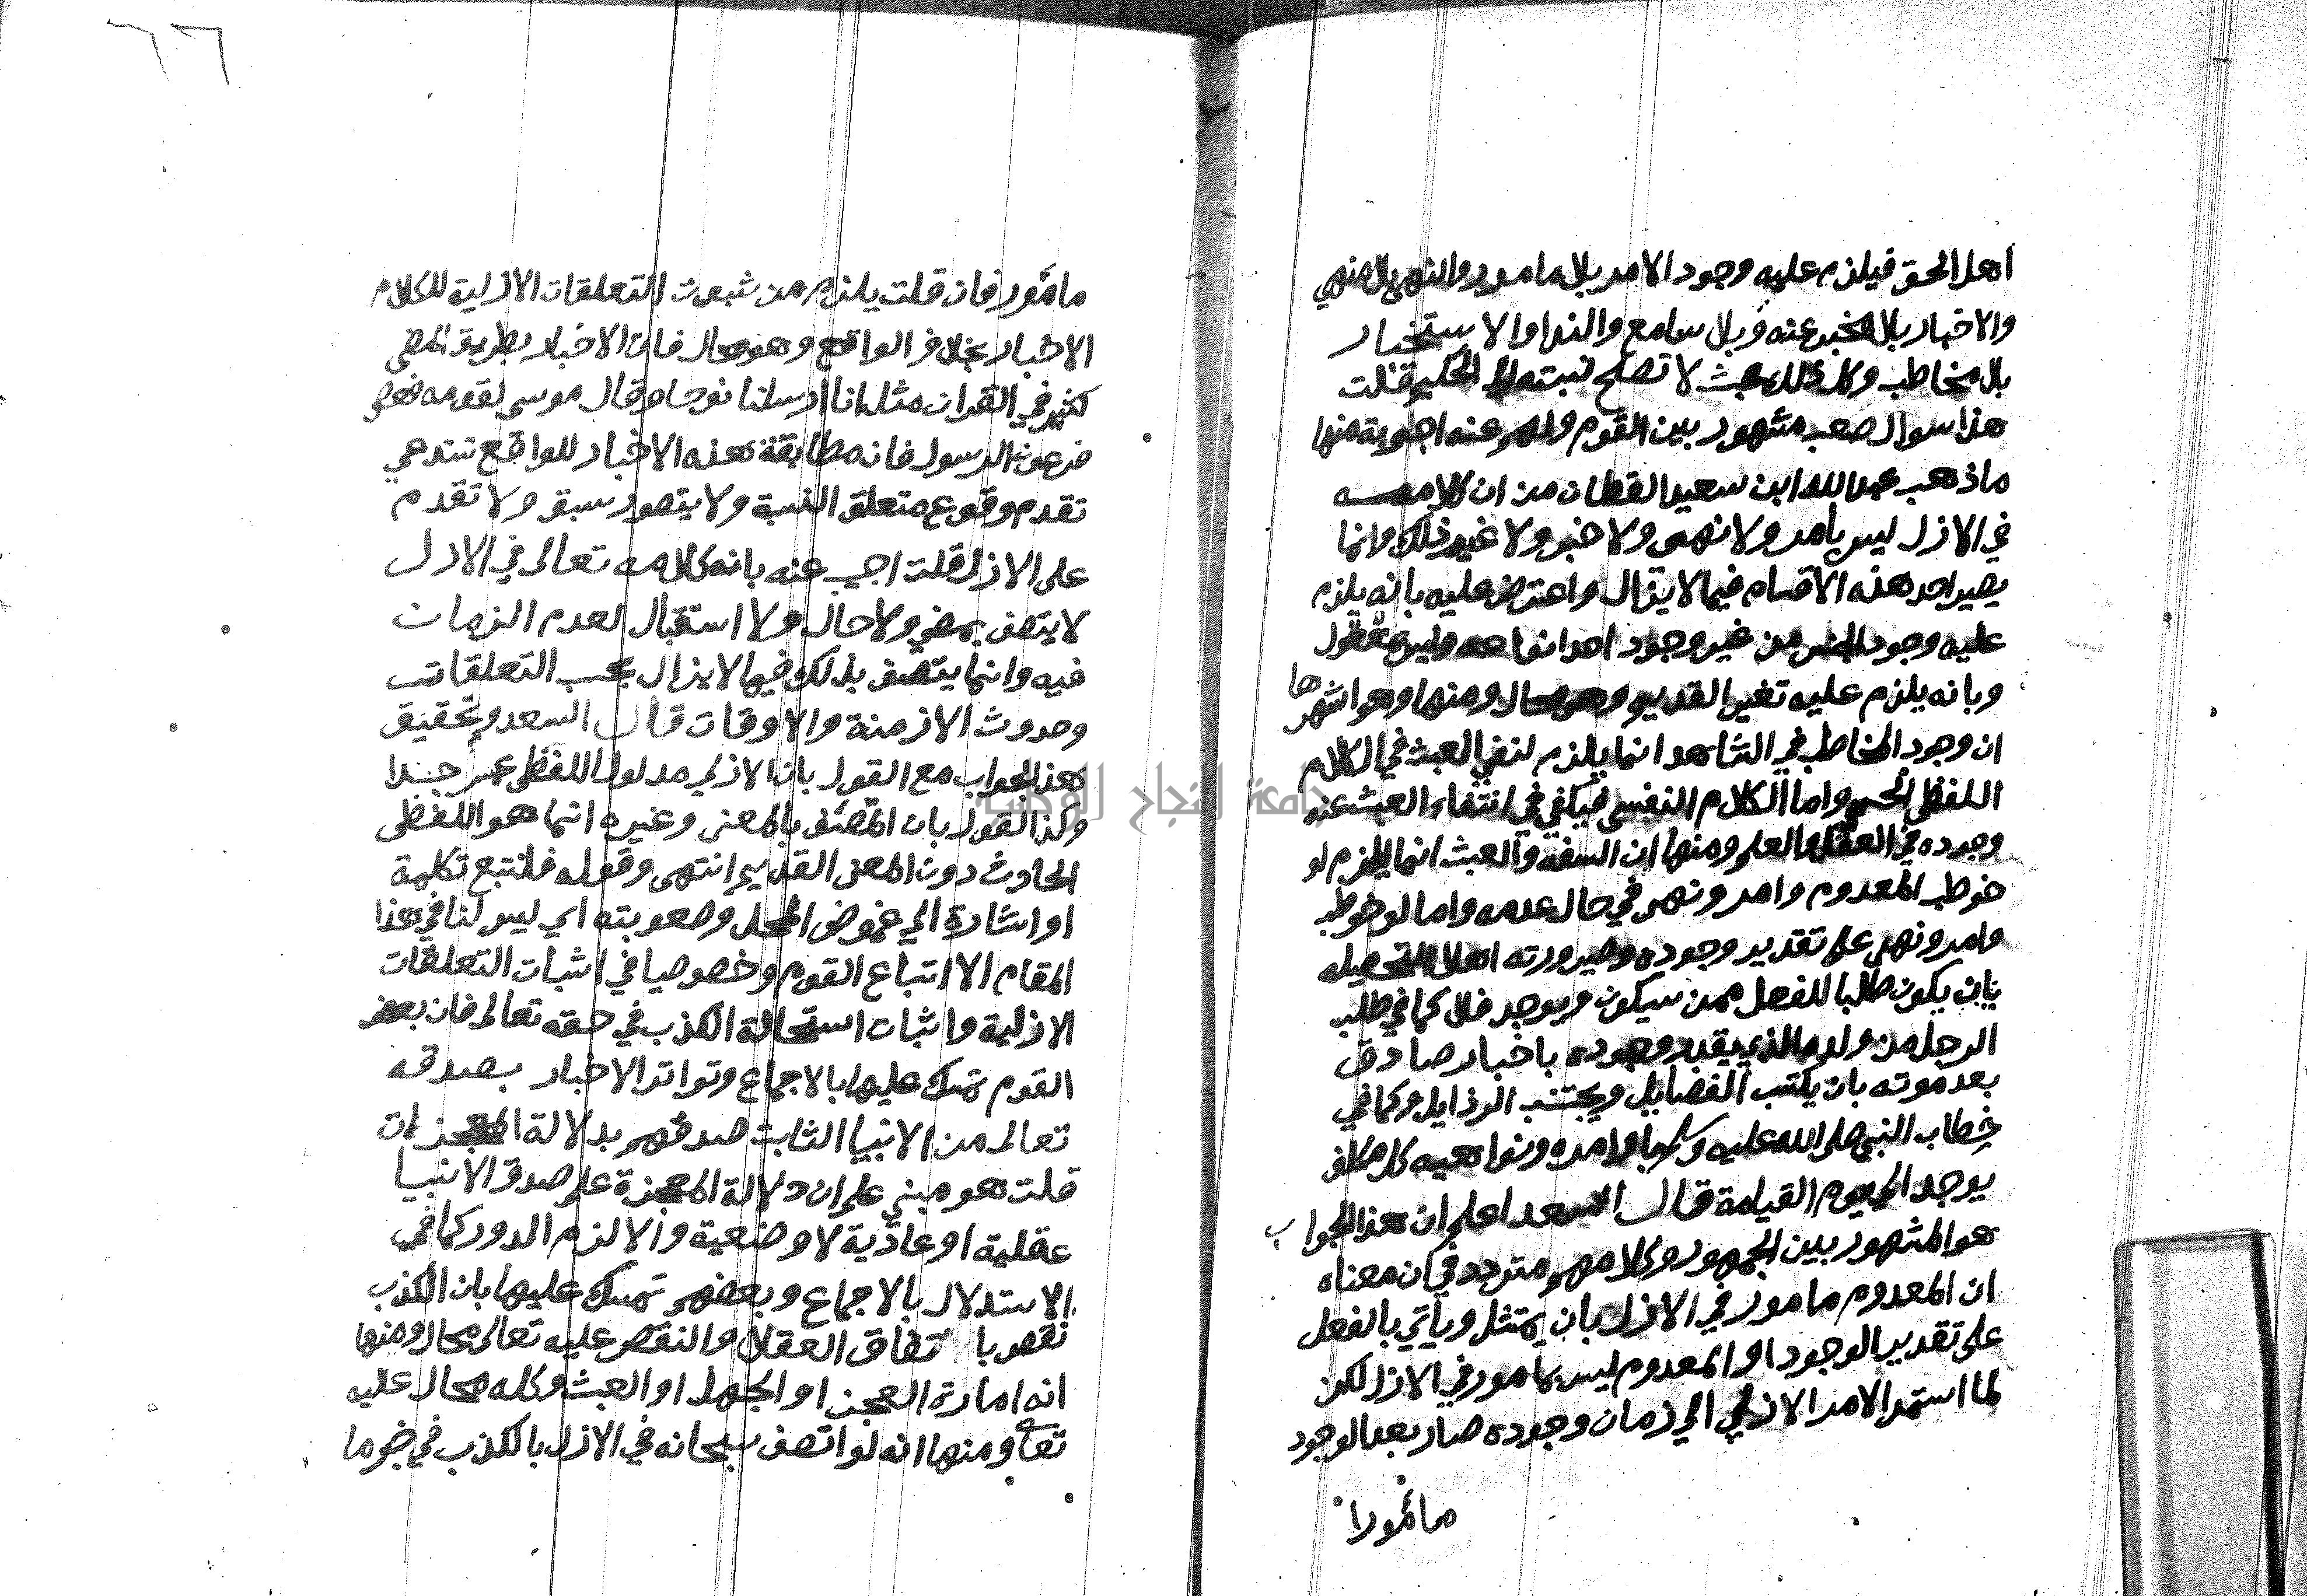 اهل الحق فيلزم عليه وجود الامر بلا مامور والنهي بلا منهي
والاخبار بلا مخبر عنه وبلا سامع والندا والاستخبار
بلا مخاطب وكل ذلك عبث لا تصلح نسبته الحكيم قلت
هذا سوال صعب مشهور بين القوم ولهم عنه اجوبة منها
ما ذهب عبد الله ابن سعيد القطان من ان كلامه
في الازل ليس بامر ولا نهي ولا خبر ولا غير ذلك وانما
يصير احد هذه الاقسام فيما لا يزال واعترض عليه بانه يلزم
عليه وجود الجنس من غير وجود احد انواعه وليس بمعقول
وبانه يلزم عليه تغير القديم وهو محال ومنها وهو اشهرها
ان وجود المخاطب في الشاهد انما يلزم لنفي العبث في الكلام
اللفظي الحسي واما الكلام النفسي فيكفي في انتفاء العبث عنه
وجوده في العقل والعلم ومنها ان السفه والعبث انما يلزم لو
خوطب المعدوم وامر ونهى في حال عدمه واما لو خوطب
وامر ونهى على تقدير وجوده وصيرورته اهلا لتحصيله
بان يكون طلبا للفعل ممن سيكون ويوجد فلا كما في طلب
الرجل من ولده الذي يقدر وجوده باخبار صادق
بعد موته بان يكتب الفضايل ويجتنب الرذايل وكما في
خطاب النبي صلى الله عليه وسلم باوامره ونواهيه كل مكلف
يوجد الى يوم القيامة قال السعد اعلم ان هذا الجواب
هو المشهور بين الجمهور وكلامهم متردد في ان معناه
ان المعدوم مامور في الازل بان يمتثل وياتي بالفعل
على تقدير الوجود او المعدوم ليس بمامور في الازل لكن
لما استمر الامر الازلي الي زمان وجوده صار بعد الوجود
مأمورا
٦٦
مأمور فان قلت يلزم من ثبوت التعلقات الازلية للكلام
الاخبار بخلاف الواقع وهو محال فان الاخبار بطريق المضي
كثير في القران مثل انا ارسلنا نوحا وقال موسى لقومه فعصى
فرعون الرسول فان مطابقة هذه الاخبار للواقع تستدعي
تقدم وقوع متعلق النسبة ولا يتصور سبق ولا تقدم
على الازل قلت اجيب عنه بان كلامه تعالى في الازل
لا يتصف بمضي ولا حال ولا استقبال لعدم الزمان
فيه وانما يتصف بذلك فيما لا يزال بحسب التعلقات
وحدوث الازمنة والاوقات قال السعد وتحقيق
هذا الجواب مع القول بان الازلي مدلول اللفظي عسر جدا
وكذا القول بان المتصف بالمعنى وغيره انما هو اللفظي
الحادث دون المعنى القديم انتهى وقوله فلنتبع تكلمة
او اشارة الي غموض المحل وصعوبته اي ليس لنا في هذا
المقام الا اتباع القوم وخصوصيا في اثبات التعلقات
الازلية واثبات استحالة الكذب في حقه تعالى فان بعض
القوم تمسك عليها بالاجماع وتواتر الاخبار بصدقه
تعالى من الانبيا الثابت صدقهم بدلالة المعجزات
قلت هو مبني على ان دلالة المعجزة على صدق الانبيا
عقلية او عادية لا وضعية والا لزم الدور كما في
الاستدلال بالاجماع وبعضهم تمسك عليها بان الكذب
نقص باتفاق العقلا والنقص عليه تعالى محال ومنها
انه امارة العجز او الجهل او العبث وكله محال عليه
تعا ومنها انه لو اتصف سبحانه في الازل بالكذب في خبر ما
جامعة النجاح الوطنية